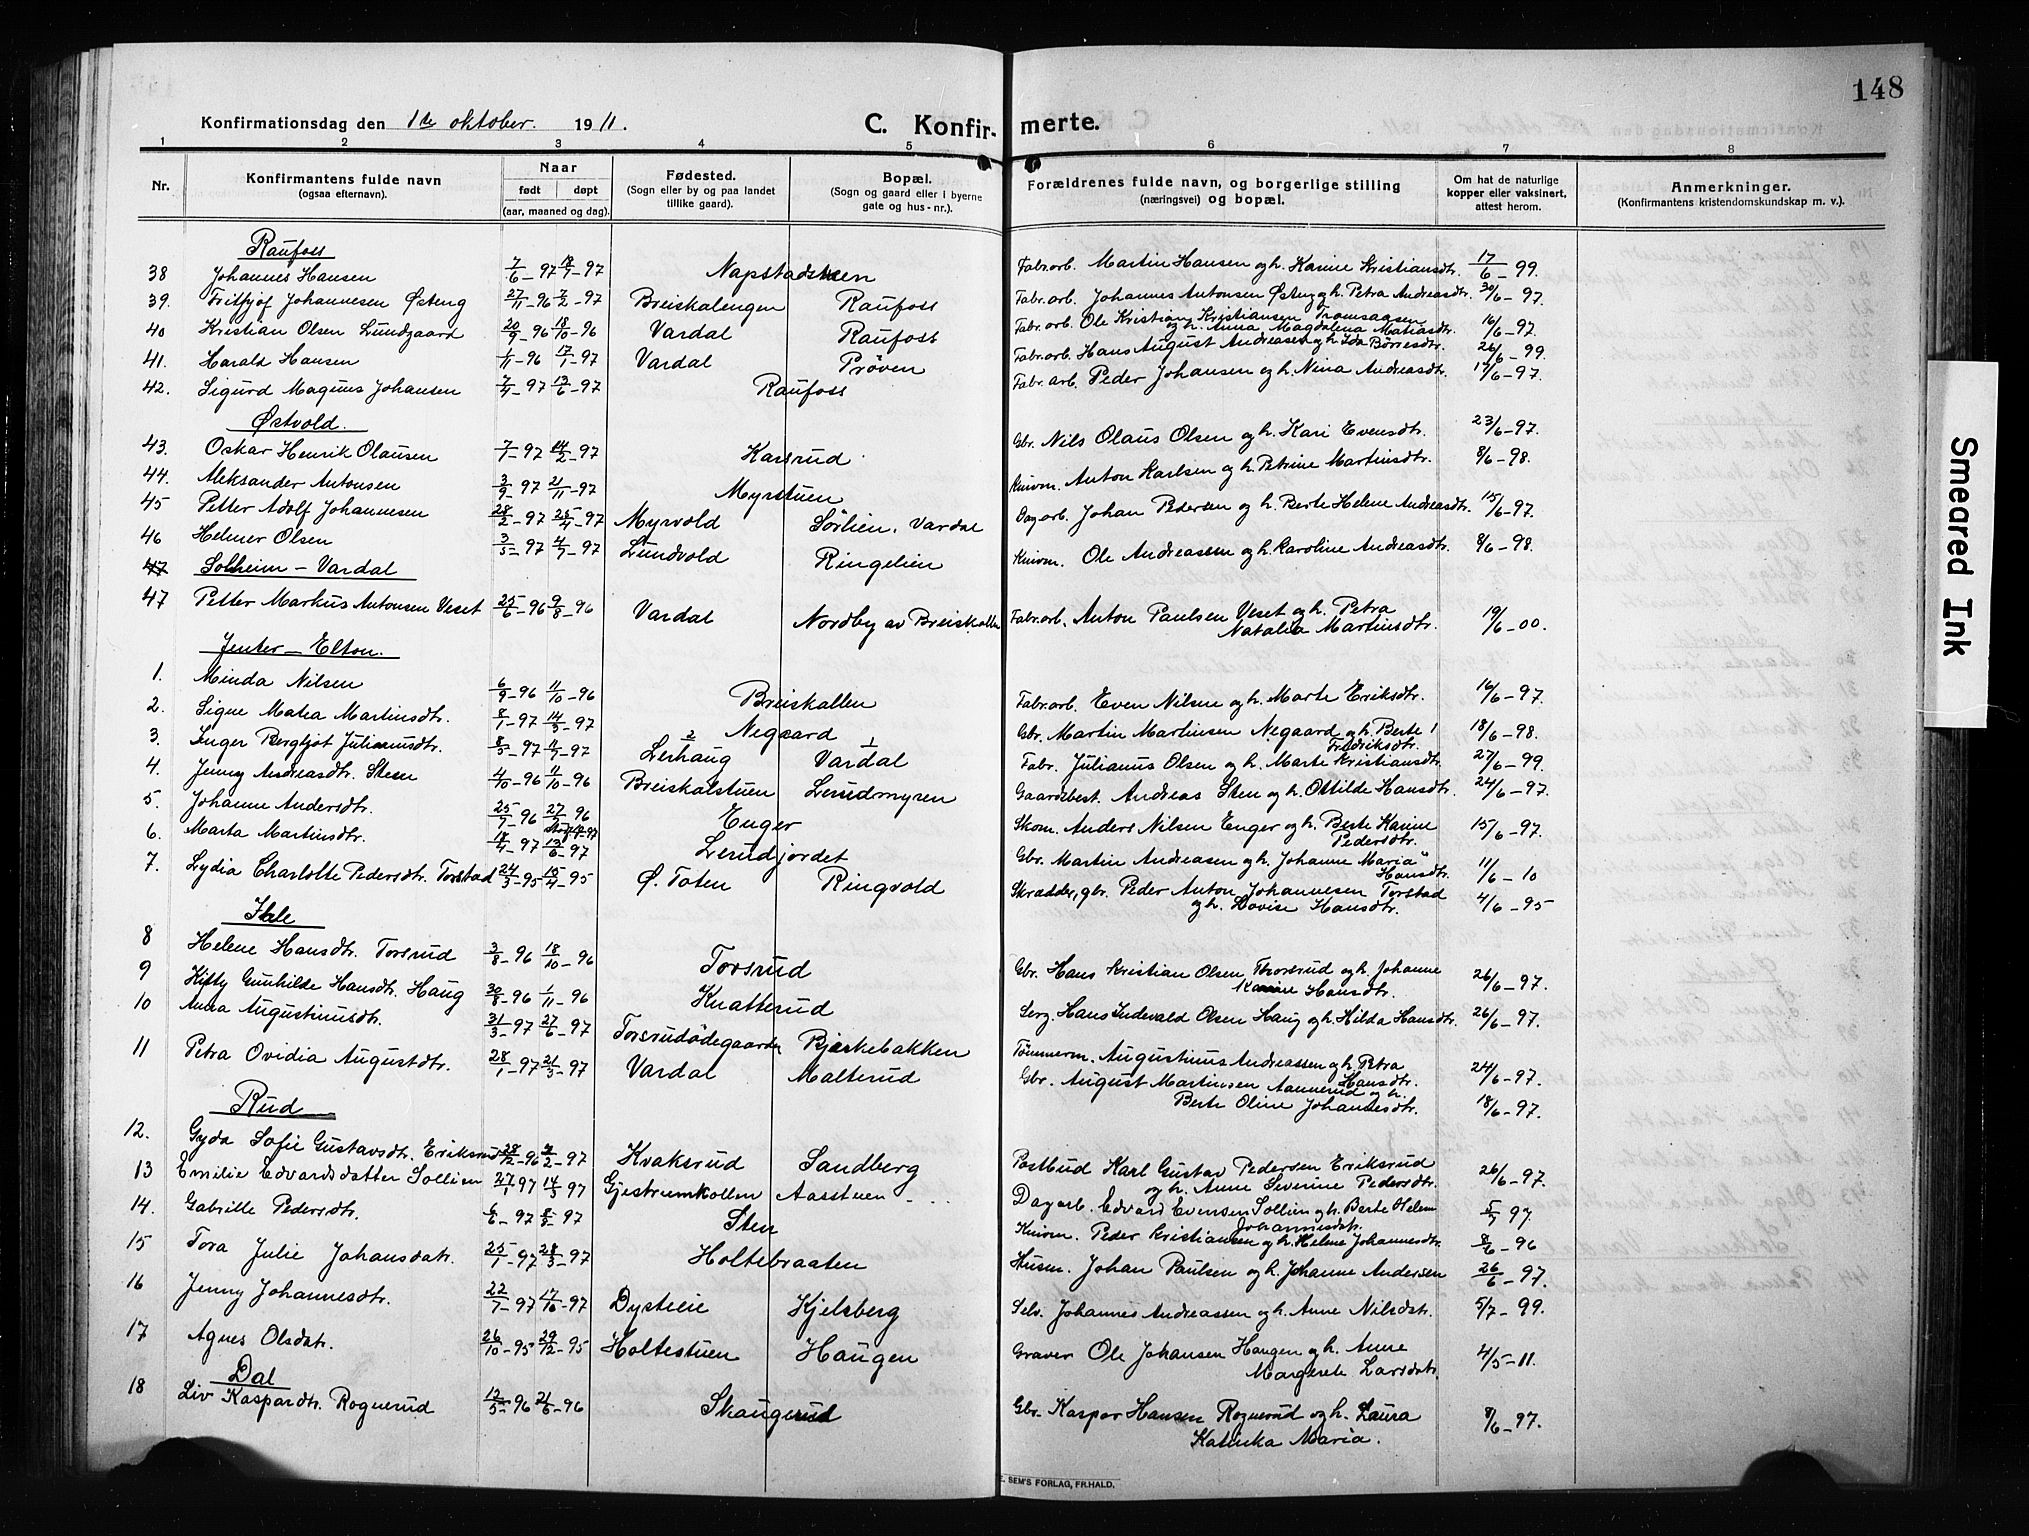 148
Konfirmationsdag den 1ste oktober. 1911.
C. Konfirmerte.
1 2 3 4 5 6 7 8
Nr. Konfirmantens fulde navn (ogsaa efternavn). Naar født døpt (aar, maaned og dag). Fødested. (Sogn eller by og paa landet tillike gaard). Bopæl. (Sogn og gaard eller i byerne gate og hus-nr.). Forældrenes fulde navn, og borgerlige stilling (næringsvei) og bopæl. Om hat de naturlige kopper eller vaksinert, attest herom. Anmerkninger. (Konfirmantens kristendomskundskap m. v.).
Raufoss
38 Johannes Hansen 7/6-97 -97 Napstadstuen Fabr.arb. Martin Hansen og h. Karine Kristiansdtr. 17/6-99.
39. Fritjof Johannesen Østeng 27/11-96 7/2-97 Breiskalengen Raufoss Fabr.arb. Johannes Antonsen Østeng og h. Petra Andreasdtr. 30/6-97.
40 Kristian Olsen Lundgaard 20/9-96 18/10-96 Vardal Raufoss Fabr.arb. Ole Kristian Kristiansen Tromsaasen og h. Anna Magdalena Matiasdtr. 16/6-97.
41. Harald Hansen 1/11-96 17/1-97 Vardal Prøven Fabr.arb. Hans August Andreasen og h. Ida Børresdtr. 26/6-99.
42. Sigurd Magnus Johansen 7/4-97 13/6-97 Raufoss Fabr.arb. Peder Johansen og h. Nina Andreasdtr. 17/6-97.
Østvold.
43. Oskar Henrik Olausen 7/1-97 14/2-97 Karsrud Gbr. Nils Olaus Olsen og h. Kari Evensdtr. 23/6-97.
44. Aleksander Antonsen 3/9-97 21/11-97 Myrstuen Knivm. Anton Karlsen og h. Petrine Martinsdtr. 8/6-98.
45 Petter Adolf Johannesen 28/2-97 25/4-97 Myrvold Sørlien. Vardal Dagarb. Johan Pedersen og h. Berte Helene Andreasdtr. 15/6-97.
46 Helmer Olsen 3/5-97 4/7-97 Lundvold Ringelien Knivm. Ole Andreassen og h. Karoline Andreasdtr. 8/6-98.
47 Solheim - Vardal
47 Petter Markus Antonsen Veset 25/6-96 9/8-96 Vardal Nordby av Breiskallen Fabr.arb. Anton Paulsen Veset og h. Petra Natalia Martinsdtr. 19/6-00.
Jenter - Elton.
1. Minda Nilsen 6/9-96 11/10-96 Breiskallen Fabr.arb. Even Nilsen og h. Marte Eriksdtr. 16/6-97.
2. Signe Matea Martinsdtr. 8/1-97 14/3-97 Negaard Gbr. Martin Martinsen Negaard og h. Berte Fredriksdtr. 18/6-98.
3. Inger Bergljot Julianusdtr. 8/5-97 -97 2 Lerhaug 1 Vardal Fabr. Julianus Olsen og h. Marte Kristiansdtr. 27/6-99.
4. Jenny Andreasdtr. Sten 4/10-96 11/10-96 Breiskalstuen Lerudmyren Gaardsbest. Andreas Sten og h. Ottilde Hansdtr. 24/6-97.
5. Johanne Andersdtr. 25/7-96 27/-96 Enger Skom. Anders Nilsen Enger og h. Berte Karine Pedersdtr. 15/6-97.
6. Marta Martinsdtr. -97 13/6-97 Lerudjordet Gbr. Martin Andreasen og h. Johanne Maria Hansdtr. 11/6-10
7. Lydia Charlotte Pedersdtr. Torstad 24/3-95 15/4-95 Ø. Toten Ringvold Skrædder, gbr. Peder Anton Johannesen Torstad og h. Lovise Hansdtr. 4/6-95
Ihle
8 Helene Hansdtr. Torsrud 3/8-96 18/10-96 Torsrud Gbr. Hans Kristian Olsen Thorsrud og h. Johanne Karine Hansdtr. 26/6-97.
9 Kitty Gunhilde Hansdtr. Haug 30/8-96 1/11-96 Knatterud Serg. Hans Indevald Olsen Haug og h. Hilda Hansdtr. 26/6-97.
10 Anna Augustinusdtr. 31/3-97 27/6-97 Torsrudødegaarden Bjerkebakken Tømmerm. Augustinus Andreassen og h. Petra Hansdtr. 24/6-97.
11 Petra Ovidia Augustdtr. 28/1-97 21/3-97 Vardal Malterud Gbr. August Martinsen Aannerud og h. Berte Oline Johannesdtr. 18/6-97.
Rud
12. Gyda Sofie Gustavsdtr. Eriksrud -96 -97 Kvaksrud Sandberg Postbud Karl Gustav Pedersen Eriksrud og h. Anne Severine Pedersdtr. 26/6-97.
13 Emilie Edvardsdatter Sollien 27/1 97 14/3 97 Gjestrumkollen Aasstuen - Dagarb. Edvard Evensen Sollien og h. Berte Helene Johannesdtr. 5/7 97.
14. Gabrille Pedersdtr. -97 -97 Sten Knivm. Peder Kristiansen og h. Helene Johannesdtr. 8/6-96
15 Tora Julie Johansdatr. 25/1-97 28/3-97 Holtebraaten Husm. Johan Paulsen og h. Johanne Andersen 26/6-97.
16 Jenny Johannesdtr. 22/7-97 17/10-97 Dysteeie Kjelsberg Selv. Johannes Andreassen og h. Anne Nilsdtr. 5/7-99.
17 Agnes Olsdatr. 26/10-95 29/12-95 Holtestuen Haugen Graver Ole Johansen Haugen og h. Anne Margrete Larsdatr. 4/5-11.
Dal
18 Liv Kaspardtr. Rognerud 12/5-96 21/6-96 Skaugerud Gbr. Kaspar Hansen Rognerud og h. Laura Katinka Maria. 8/6-97.
E. SEM'S FORLAG, FR.HALD.
Smeared Ink